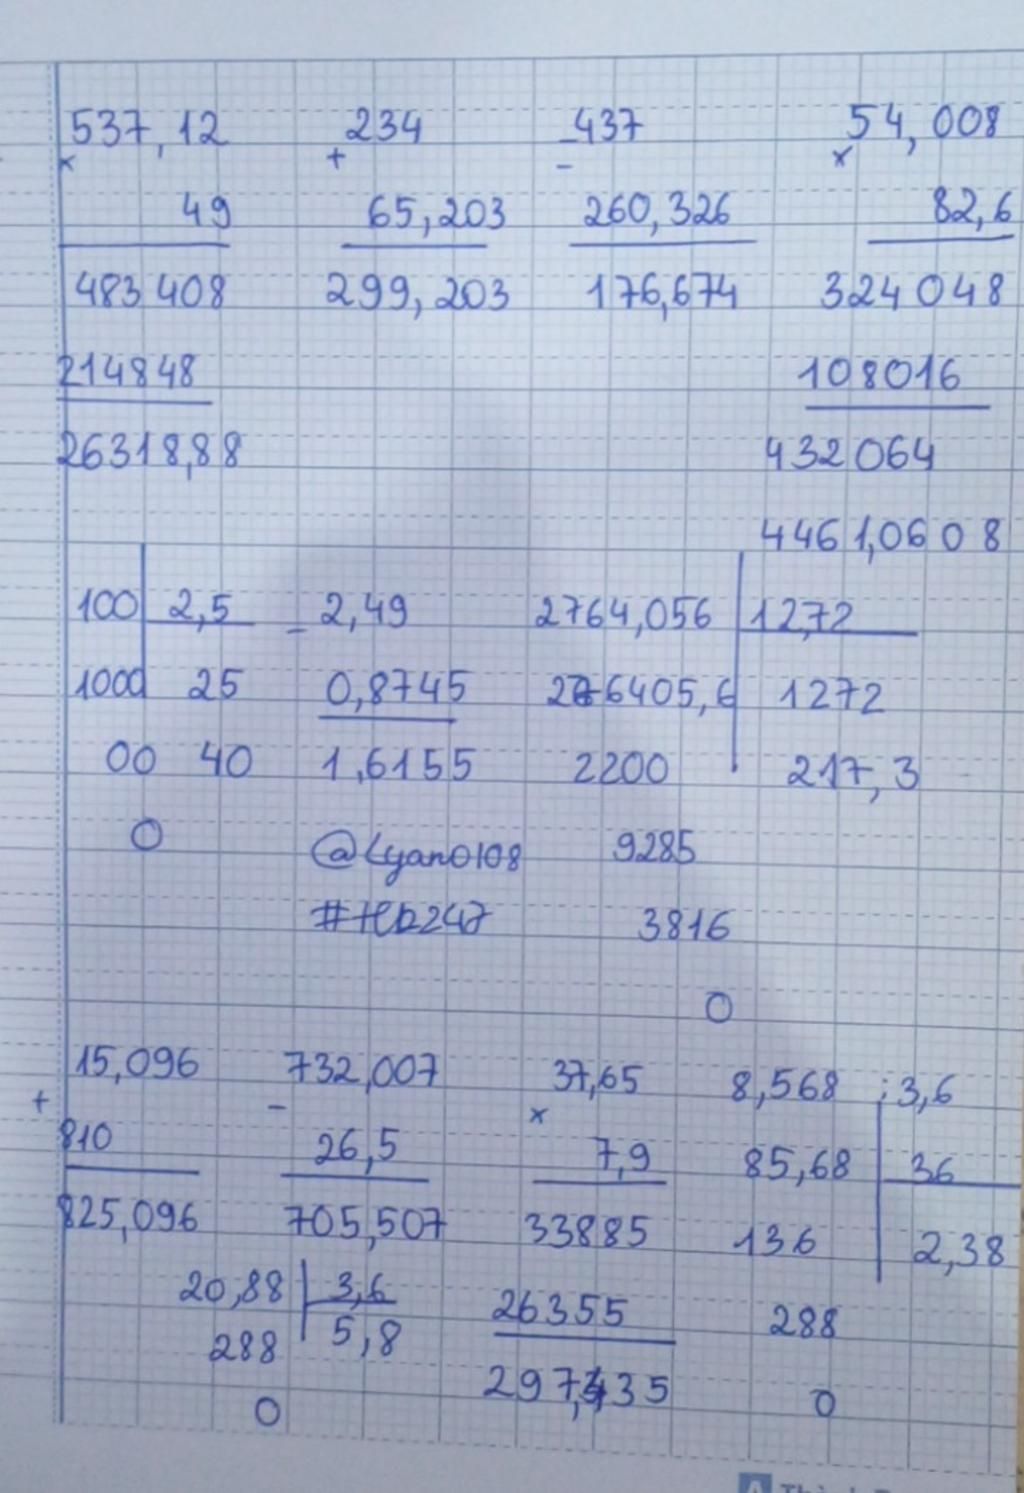 537,12 234 437 54,008
× + - ×
49 65,203 260,326 82,6
483408 299,203 176,674 324048
214848 108016
26318,88 432064
4461,0608
100 2,5 - 2,49 2764,056 12,72
1000 25 0,8745 276405,6 1272
00 40 1,6155 2200 217,3
0 @Lyan0108 9285
#Hb247 3816
0
15,096 732,007 37,65 8,568 : 3,6
+ - ×
810 26,5 7,9 85,68 36
825,096 705,507 33885 136 2,38
20,88 3,6 26355 288
288 5,8
0 297,435 0